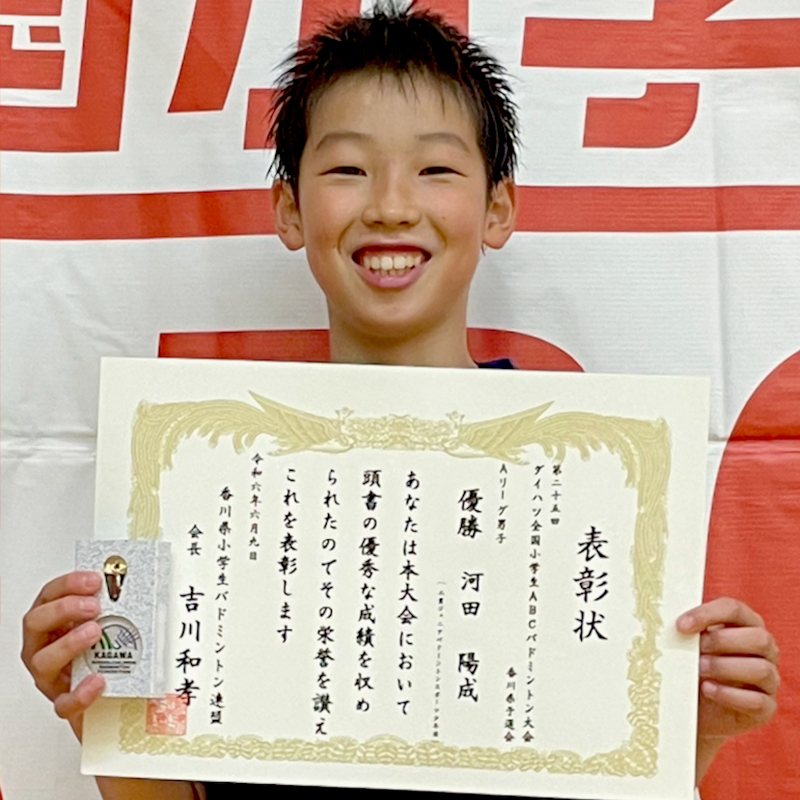 表彰状
第二十五回
ダイハツ全国小学生ABCバドミントン大会
香川県予選会
Aリーグ男子
優勝 河田 陽成
あなたは本大会において
頭書の優秀な成績を収め
られたのでその栄誉を讃え
これを表彰します
令和六年六月九日
香川県小学生バドミントン連盟
会長 吉川和孝
KAGAWA